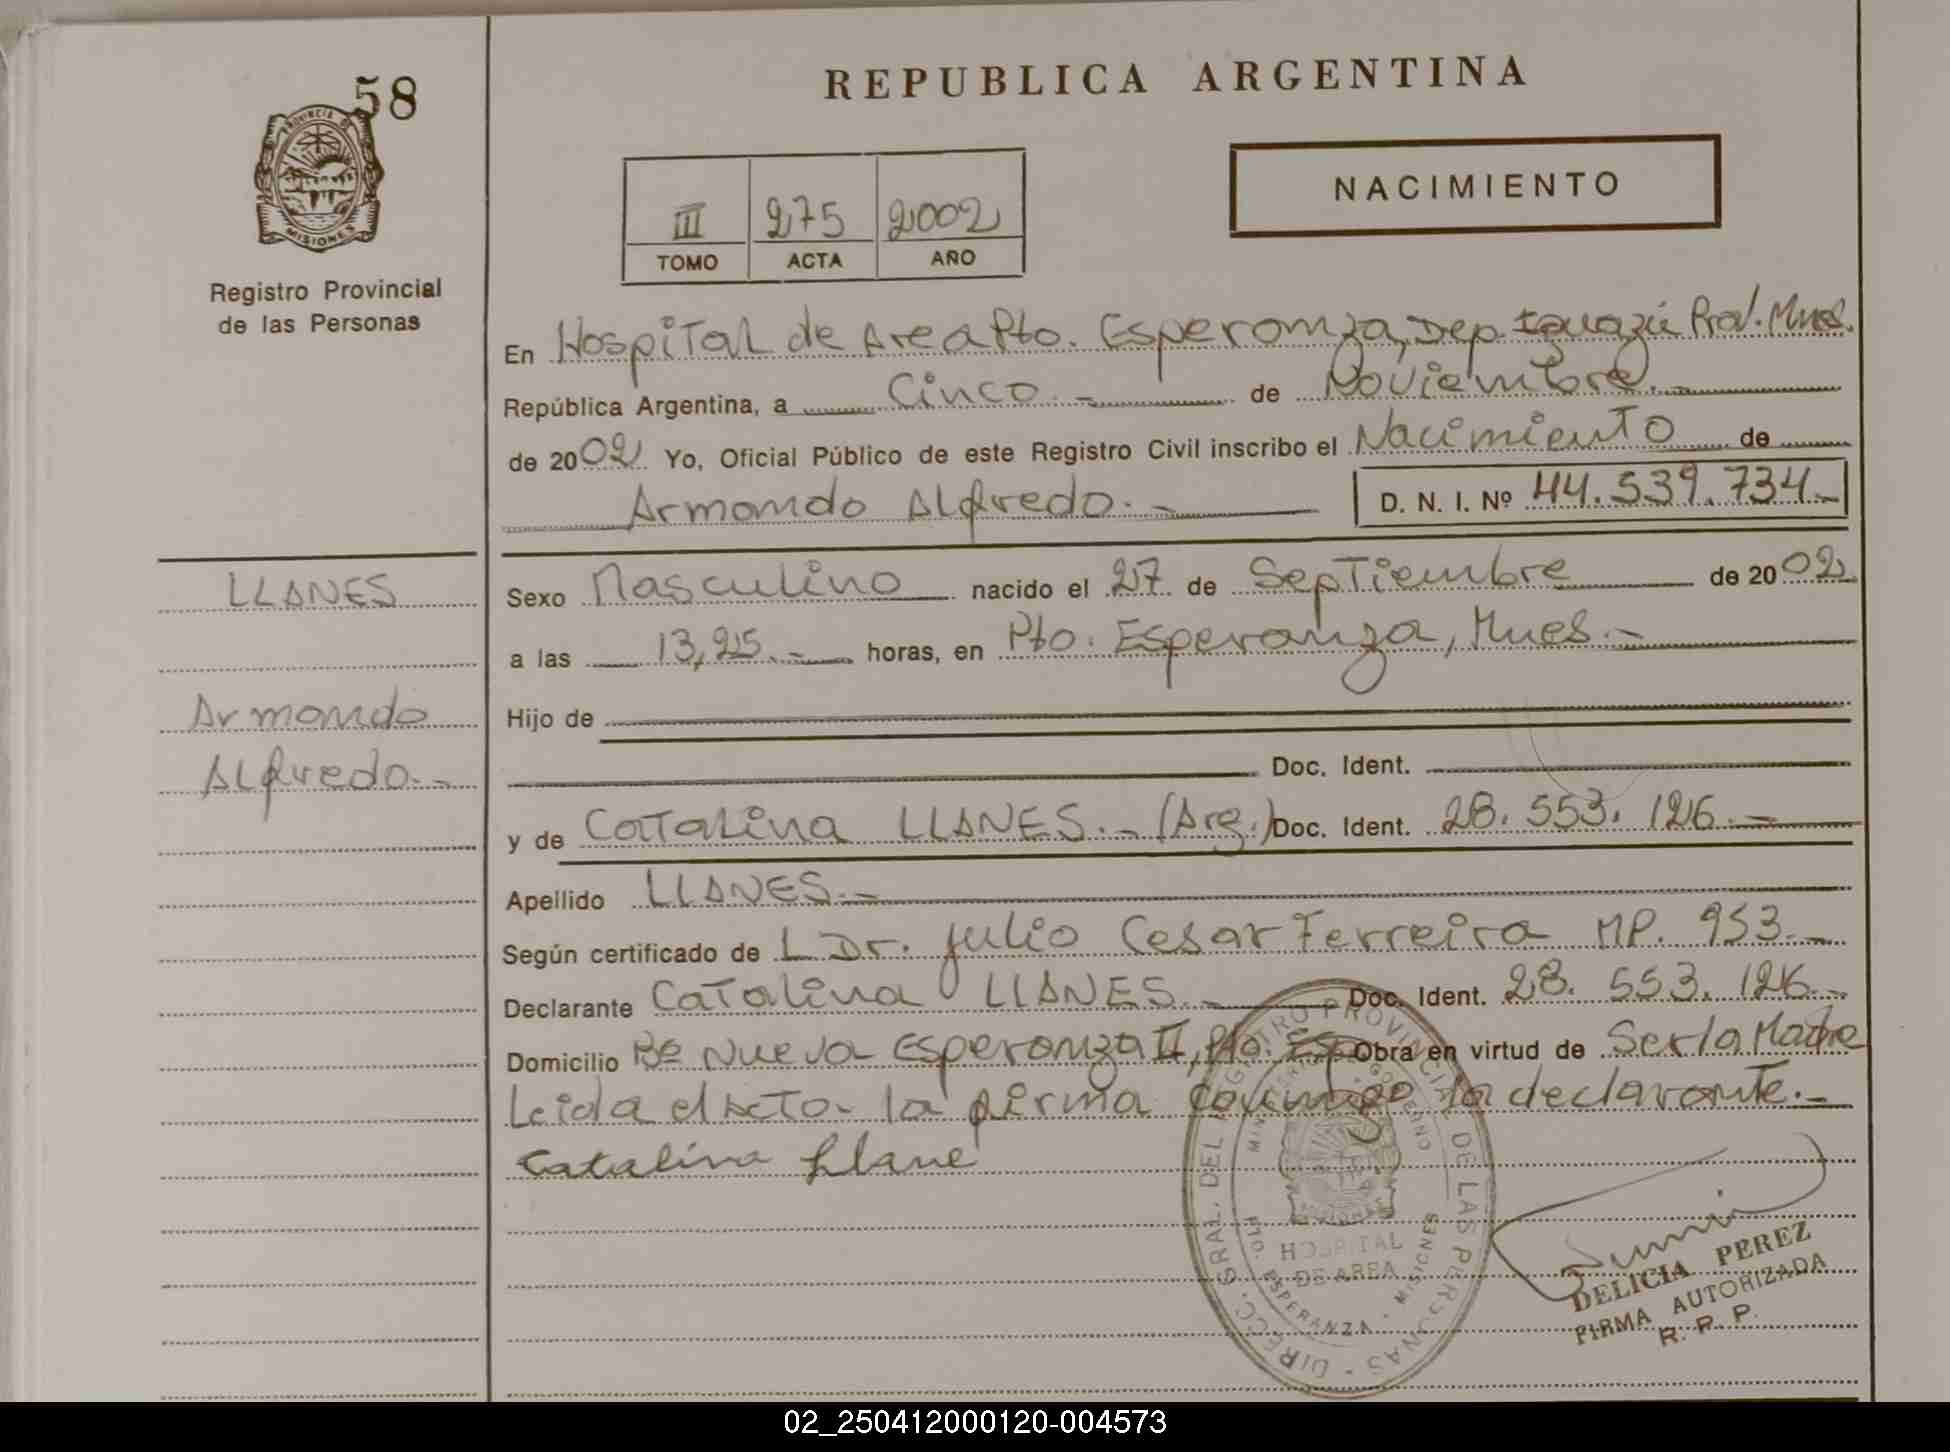 58
PROVINCIA DE
MISIONES
Registro Provincial
de las Personas
REPUBLICA ARGENTINA
NACIMIENTO
III 275 2002
TOMO ACTA AÑO
En Hospital de Area Pto. Esperanza, Dep Iguazú Prov. Mnes.
República Argentina, a Cinco.- de Noviembre.-
de 2002 Yo, Oficial Público de este Registro Civil inscribo el Nacimiento de
Armando Alfredo.- D. N. I. Nº 44.539.734.-
LLANES
Armando
Alfredo.-
Sexo Masculino nacido el 27 de Septiembre de 2002
a las 13,25.- horas, en Pto. Esperanza, Mnes.-
Hijo de
Doc. Ident.
y de Catalina LLANES.- (Arg.) Doc. Ident. 28.553.126.-
Apellido LLANES.-
Según certificado de L Dr. Julio Cesar Ferreira MP. 953.-
Declarante Catalina LLANES.- Doc. Ident. 28.553.126.-
Domicilio Bº Nueva Esperanza II, Pto. Esp Obra en virtud de Ser la Madre
Leida el Acta la firma conmigo la declarante.-
Catalina Llane
DIRECC. GRAL. DEL REGISTRO PROVINCIAL DE LAS PERSONAS
HOSPITAL
DE AREA
PTO. ESPERANZA - MISIONES
DELICIA PEREZ
FIRMA AUTORIZADA
R. P. P.
02_250412000120-004573